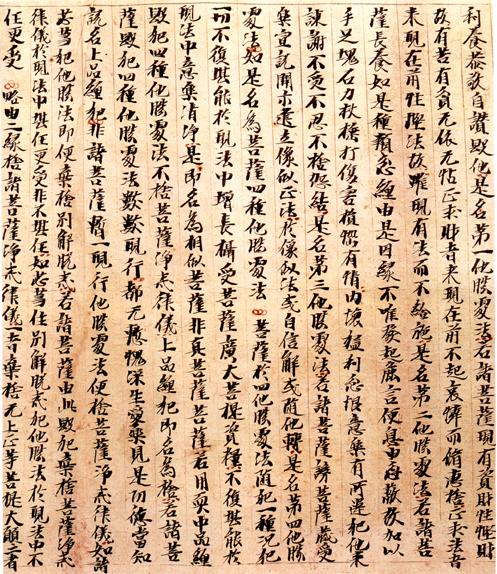 利養恭敬自讚毀他是名第一他勝處法若諸菩薩現有資財性慳財
故有苦有貧无依无怙正求財者來現在前不起哀憐而脩惠捨正求法者
來現在前性慳法故雖現有法而不給施是名第二他勝處法若諸菩
薩長養如是種類忿纏由是因緣不唯發起麁言便息由忿蔽故加以
手足塊石刀杖捶打傷害損惱有情內懷猛利忿恨意樂有所違犯他來
諫謝不受不忍不捨怨結是名第三他勝處法若諸菩薩謗菩薩藏愛
樂宣說開示建立像似正法於像似法或自信解或隨他轉是名第四他勝
處法如是名為菩薩四種他勝處法 菩薩於四他勝處法隨犯一種況犯
一切不復堪能於現法中增長攝受菩薩廣大菩提資糧不復堪能於
現法中意樂清淨是即名為相似菩薩非真菩薩菩薩若用耎中品纏
毀犯四種他勝處法不捨菩薩淨戒律儀上品纏犯即名為捨若諸菩
薩毀犯四種他勝處法數數現行都无慙愧深生愛樂見是功德當知
說名上品纏犯非諸菩薩暫一現行他勝處法便捨菩薩淨戒律儀如諸
苾芻犯他勝法即便棄捨別解脫戒若諸菩薩由此毀犯棄捨菩薩淨戒
律儀於現法中堪任更受非不堪任如苾芻住別解脫戒犯他勝法於現法中不
任更受 略由二緣捨諸菩薩淨戒律儀一者棄捨无上正等菩提大願二者